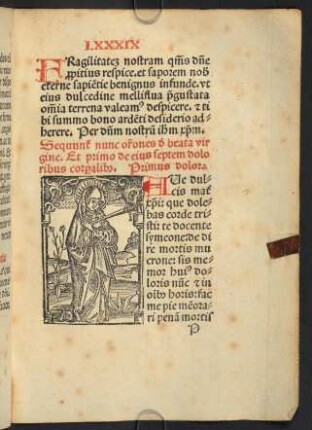 LXXXIX
FRagilitatez nostram qm̄s dn̄e
ꝓpitius respice. et saporem nob̄
eterne sapiētie benignus infunde. vt
eius dulcedine melliflua p̄gustata
om̄ia terrena valeamꝰ despicere. ⁊ ti
bi summo bono ardēti desiderio ad-
herere. Per dn̄m nostrū ih̄m xp̄m.
Sequunt̄ nunc or̄ones d̓ beata vir
gine. Et primo de eius septem dolo
ribus Primus dolor.
AUe dul-
cis mat̄
xp̄i: que dole-
bas corde tri-
sti: te docente
symeone: de di
re mortis mu
crone: sis me-
mor huiꝰ do-
loris nūc ⁊ in
oīb̄ horis: fac
me pie mēora-
ri penā mortis
P